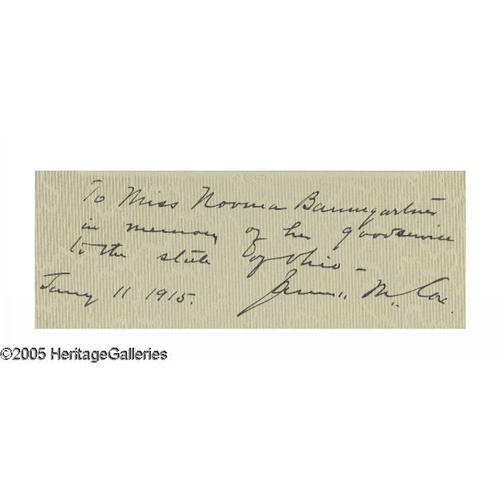 To Miss Norma Baumgartner
in memory of her good service
to the state of Ohio -
Jany 11 1915. James M. Cox.
©2005 HeritageGalleries